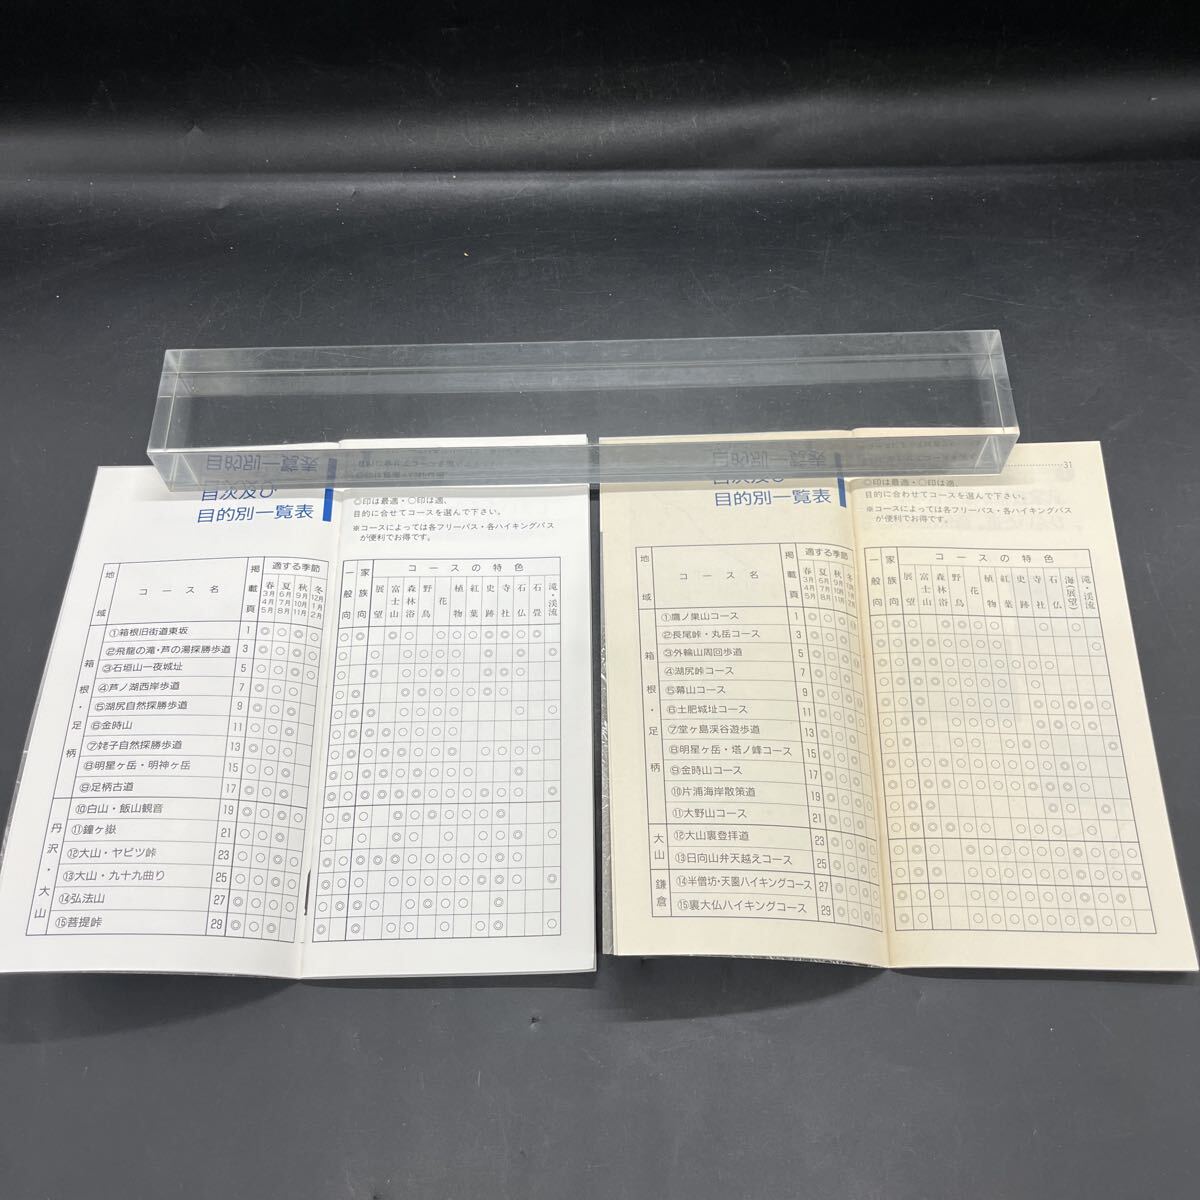 目次及び
目的別一覧表
◎印は最適・○印は適、
目的に合せてコースを選んで下さい。
※コースによっては各フリーパス・各ハイキングパス
が便利でお得です。
地域
コース名
掲載頁
適する季節
春 3月 4月 5月
夏 6月 7月 8月
秋 9月 10月 11月
冬 12月 1月 2月
一般向
家族向
コースの特色
展望
富士山
森林浴
野鳥
花
植物
紅葉
史跡
寺社
石仏
石畳
滝・渓流
箱根・足柄
①箱根旧街道東坂 1
②飛龍の滝・芦の湯探勝歩道 3
③石垣山一夜城址 5
④芦ノ湖西岸歩道 7
⑤湖尻自然探勝歩道 9
⑥金時山 11
⑦姥子自然探勝歩道 13
⑧明星ヶ岳・明神ヶ岳 15
⑨足柄古道 17
丹沢・大山
⑩白山・飯山観音 19
⑪鐘ヶ嶽 21
⑫大山・ヤビツ峠 23
⑬大山・九十九曲り 25
⑭弘法山 27
⑮菩提峠 29
31
目次及び
目的別一覧表
◎印は最適・○印は適、
目的に合わせてコースを選んで下さい。
※コースによっては各フリーパス・各ハイキングパス
が便利でお得です。
地域
コース名
掲載頁
適する季節
春 3月 4月 5月
夏 6月 7月 8月
秋 9月 10月 11月
冬 12月 1月 2月
一般向
家族向
コースの特色
展望
富士山
森林浴
野鳥
花
植物
紅葉
史跡
寺社
石仏
海(展望)
滝・渓流
箱根・足柄
①鷹ノ巣山コース 1
②長尾峠・丸岳コース 3
③外輪山周回歩道 5
④湖尻峠コース 7
⑤幕山コース 9
⑥土肥城址コース 11
⑦堂ヶ島渓谷遊歩道 13
⑧明星ヶ岳・塔ノ峰コース 15
⑨金時山コース 17
⑩片浦海岸散策道 19
⑪大野山コース 21
大山
⑫大山裏登拝道 23
⑬日向山弁天越えコース 25
鎌倉
⑭半僧坊・天園ハイキングコース 27
⑮裏大仏ハイキングコース 29